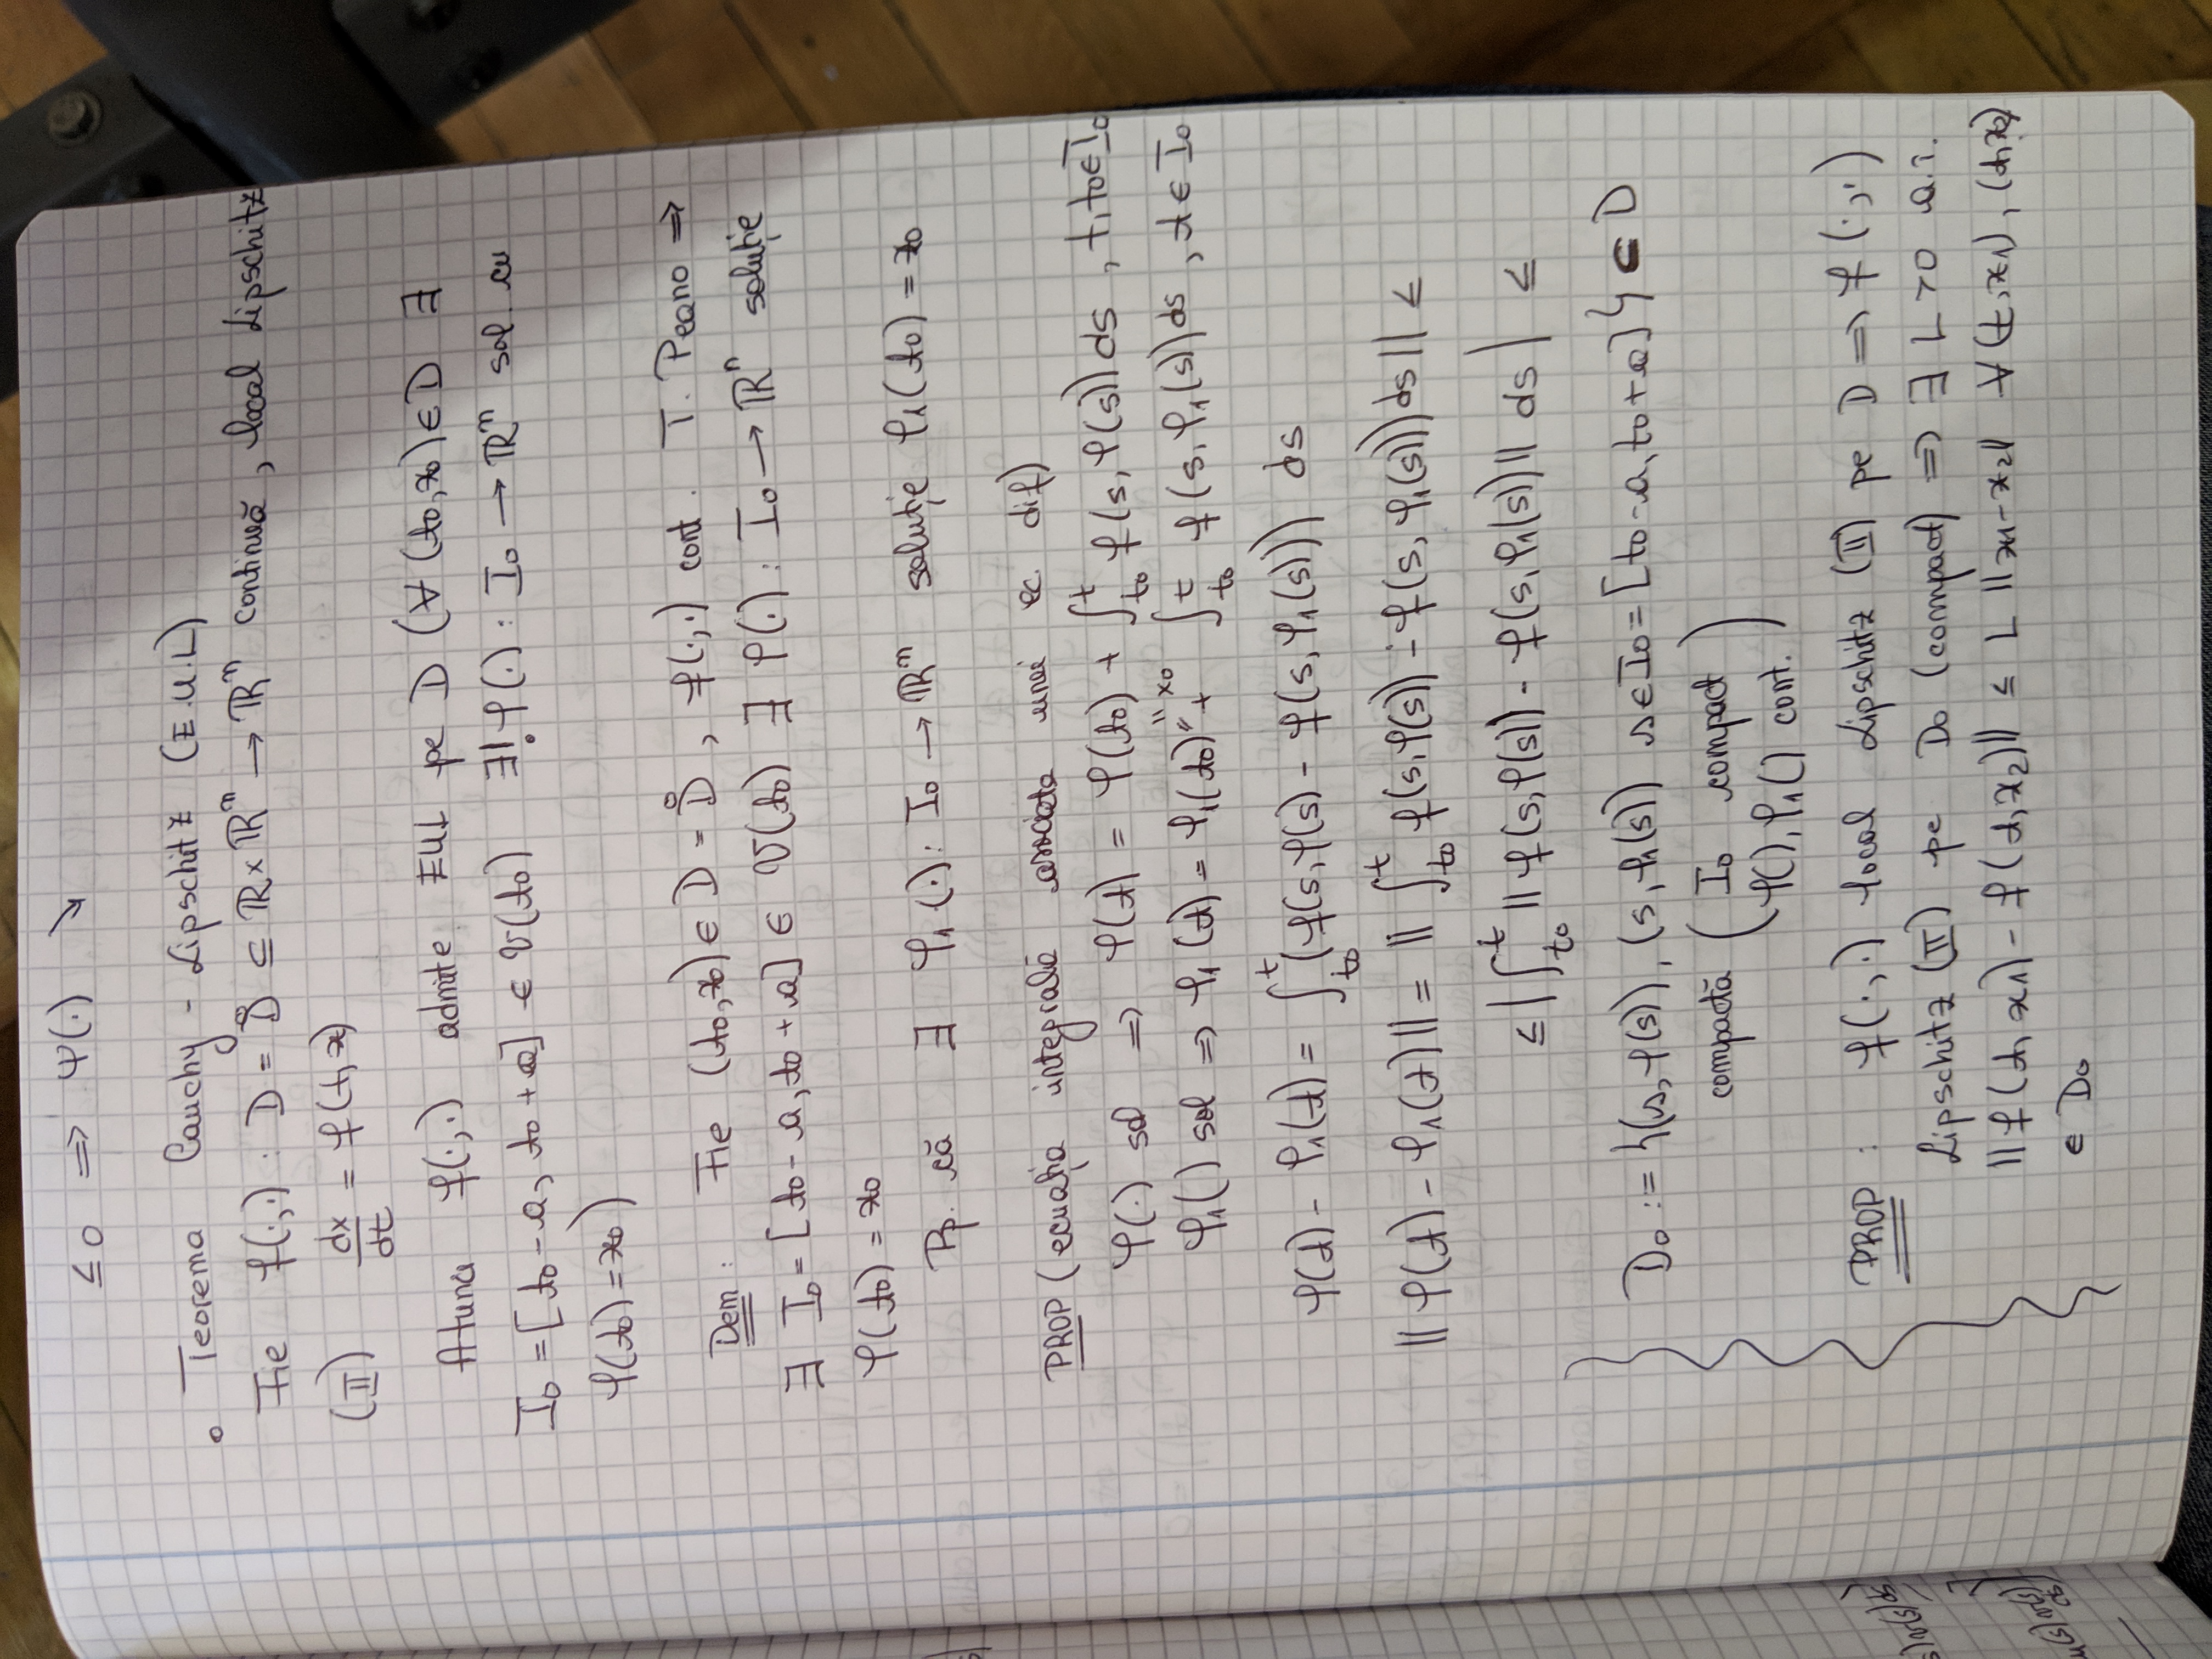 ≤ 0 ⟹ Ψ(·) ↘
∘ Teorema Cauchy - Lipschitz (E.U.L)
Fie f(·,·) : D = D̊ ⊆ ℝ×ℝⁿ → ℝⁿ continuă, local Lipschitz
(II) dx/dt = f(t,x)
Atunci f(·,·) admite EUL pe D (∀ (t₀,x₀) ∈ D ∃
I₀ = [t₀-a, t₀+a] ∈ V(t₀) ∃! φ(·) : I₀ → ℝⁿ sol. cu
φ(t₀) = x₀)
Dem : Fie (t₀,x₀) ∈ D = D̊, f(·,·) cont. T. Peano ⟹
∃ I₀ = [t₀-a, t₀+a] ∈ V(t₀) ∃ φ(·) : I₀ → ℝⁿ soluție
φ(t₀) = x₀
Pp. că ∃ φ₁(·) : I₀ → ℝⁿ soluție φ₁(t₀) = x₀
PROP (ecuația integrală asociata unei ec. dif)
φ(·) sol ⟹ φ(t) = φ(t₀) + ∫_{t₀}^{t} f(s, φ(s)) ds , t, t₀ ∈ I₀
" x₀
φ₁() sol ⟹ φ₁(t) = φ₁(t₀)" + ∫_{t₀}^{t} f(s, φ₁(s)) ds , t ∈ I₀
φ(t) - φ₁(t) = ∫_{t₀}^{t} (f(s, φ(s) - f(s, φ₁(s))) ds
‖φ(t) - φ₁(t)‖ = ‖ ∫_{t₀}^{t} f(s, φ(s)) - f(s, φ₁(s)) ds ‖ ≤
≤ | ∫_{t₀}^{t} ‖ f(s, φ(s)) - f(s, φ₁(s)) ‖ ds | ≤
D₀ := {(s, φ(s)), (s, φ₁(s)) s ∈ I₀ = [t₀-a, t₀+a]} ⊂ D
compactă ( I₀ compact
φ(), φ₁() cont. )
PROP : f(·,·) local Lipschitz (II) pe D ⟹ f(·,·)
Lipschitz (II) pe D₀ (compact) ⟹ ∃ L > 0 a.î.
‖f(t, x₁) - f(t, x₂)‖ ≤ L ‖x₁ - x₂‖ ∀ (t, x₁), (t, x₂)
∈ D₀